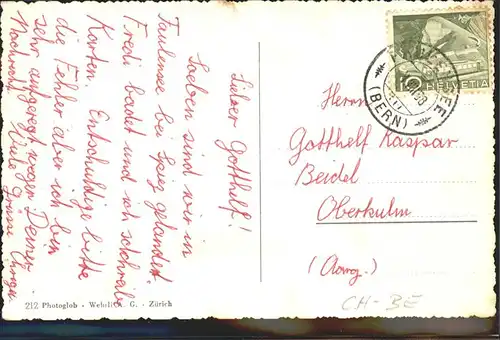 Lieber Gotthelf!
Soeben sind wir in
Faulensee bei Spiez gelandet.
Fredi badet und ich schreibe
Karten. Entschuldige bitte
die Fehler aber ich bin
sehr aufgeregt wegen Deiner
Nachricht. Viele Grüsse
212 Photoglob - Wehrli A. G. - Zürich
HELVETIA
10
(BERN)
Herrn
Gotthelf Kaspar
Beidel
Oberkulm
(Aarg.)
CH-BE